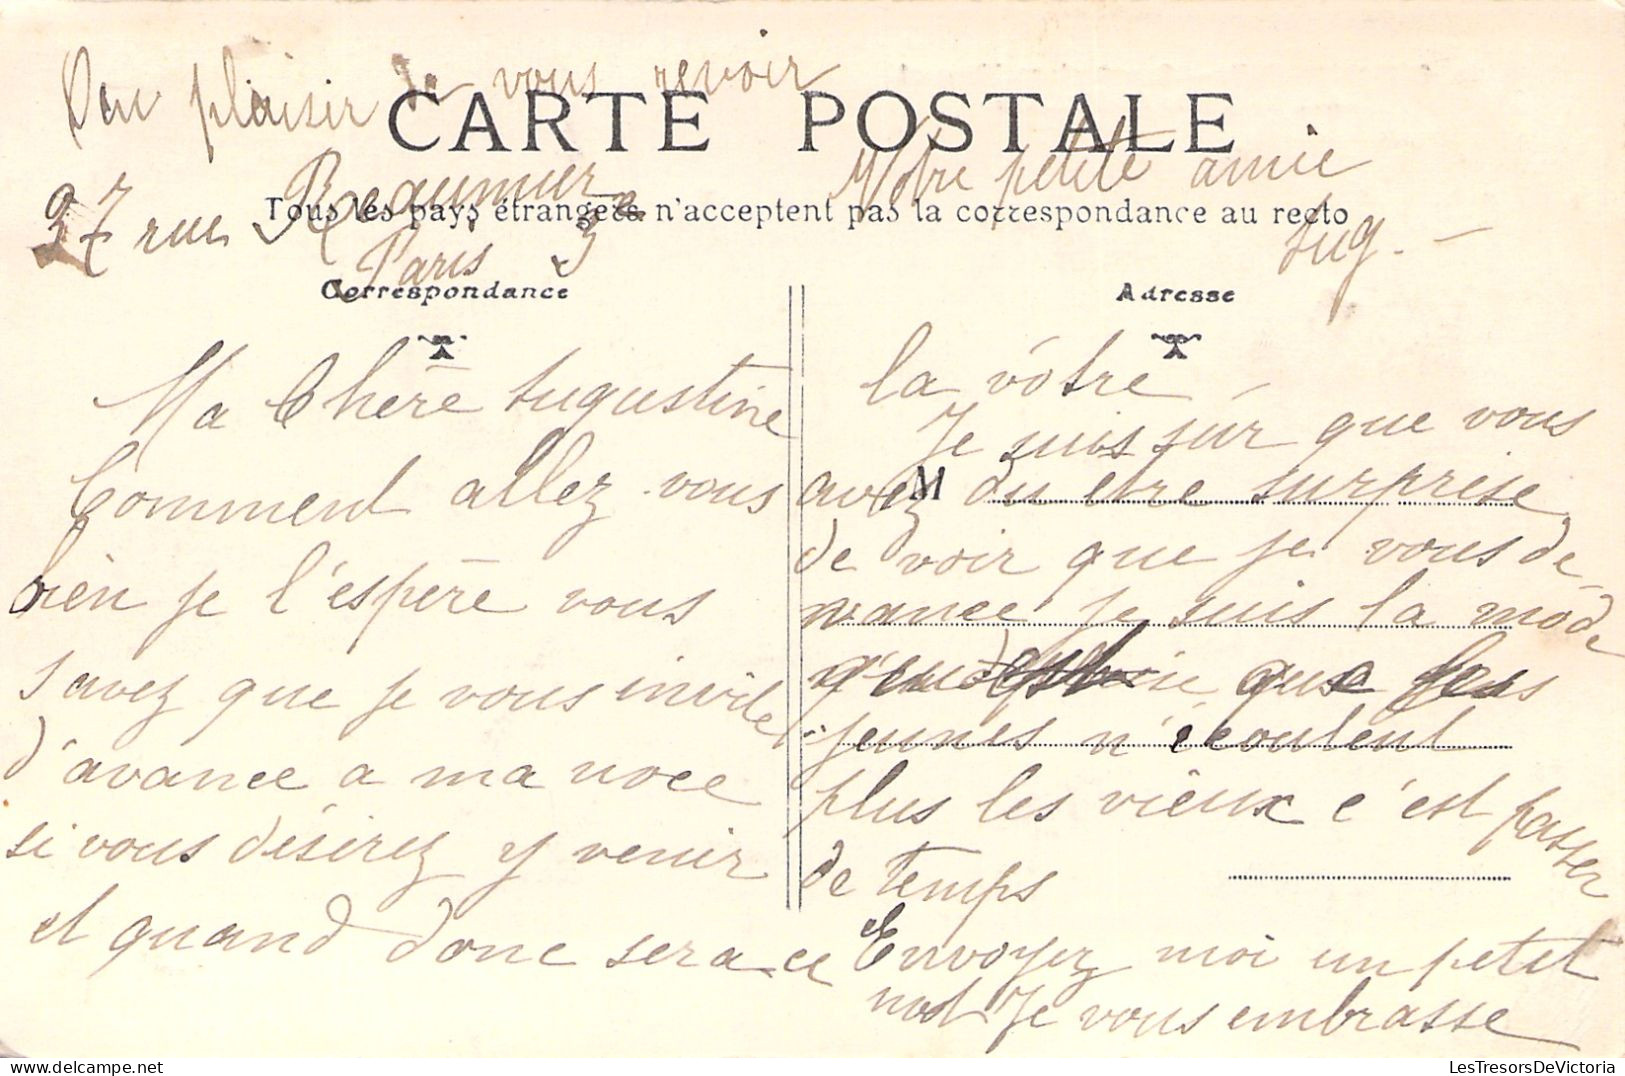 Au plaisir de vous revoir
CARTE POSTALE
Votre petite amie
37 rue Reaumur
Tous les pays étrangers n'acceptent pas la correspondance au recto
Paris 3e
Aug. -
Correspondance
Adresse
Ma Chère Augustine
Comment allez vous
bien je l'espère vous
savez que je vous invite
d'avance a ma noce
si vous désirez y venir
et quand donc sera ce
la vôtre
Je suis sûr que vous
M
avez du etre surprise
de voir que je vous de-
vance je suis la mode
que les
jeunes n'écoutent
plus les vieux c'est passer
de temps
et Envoyez moi un petit
mot Je vous embrasse
LesTresorsDeVictoria